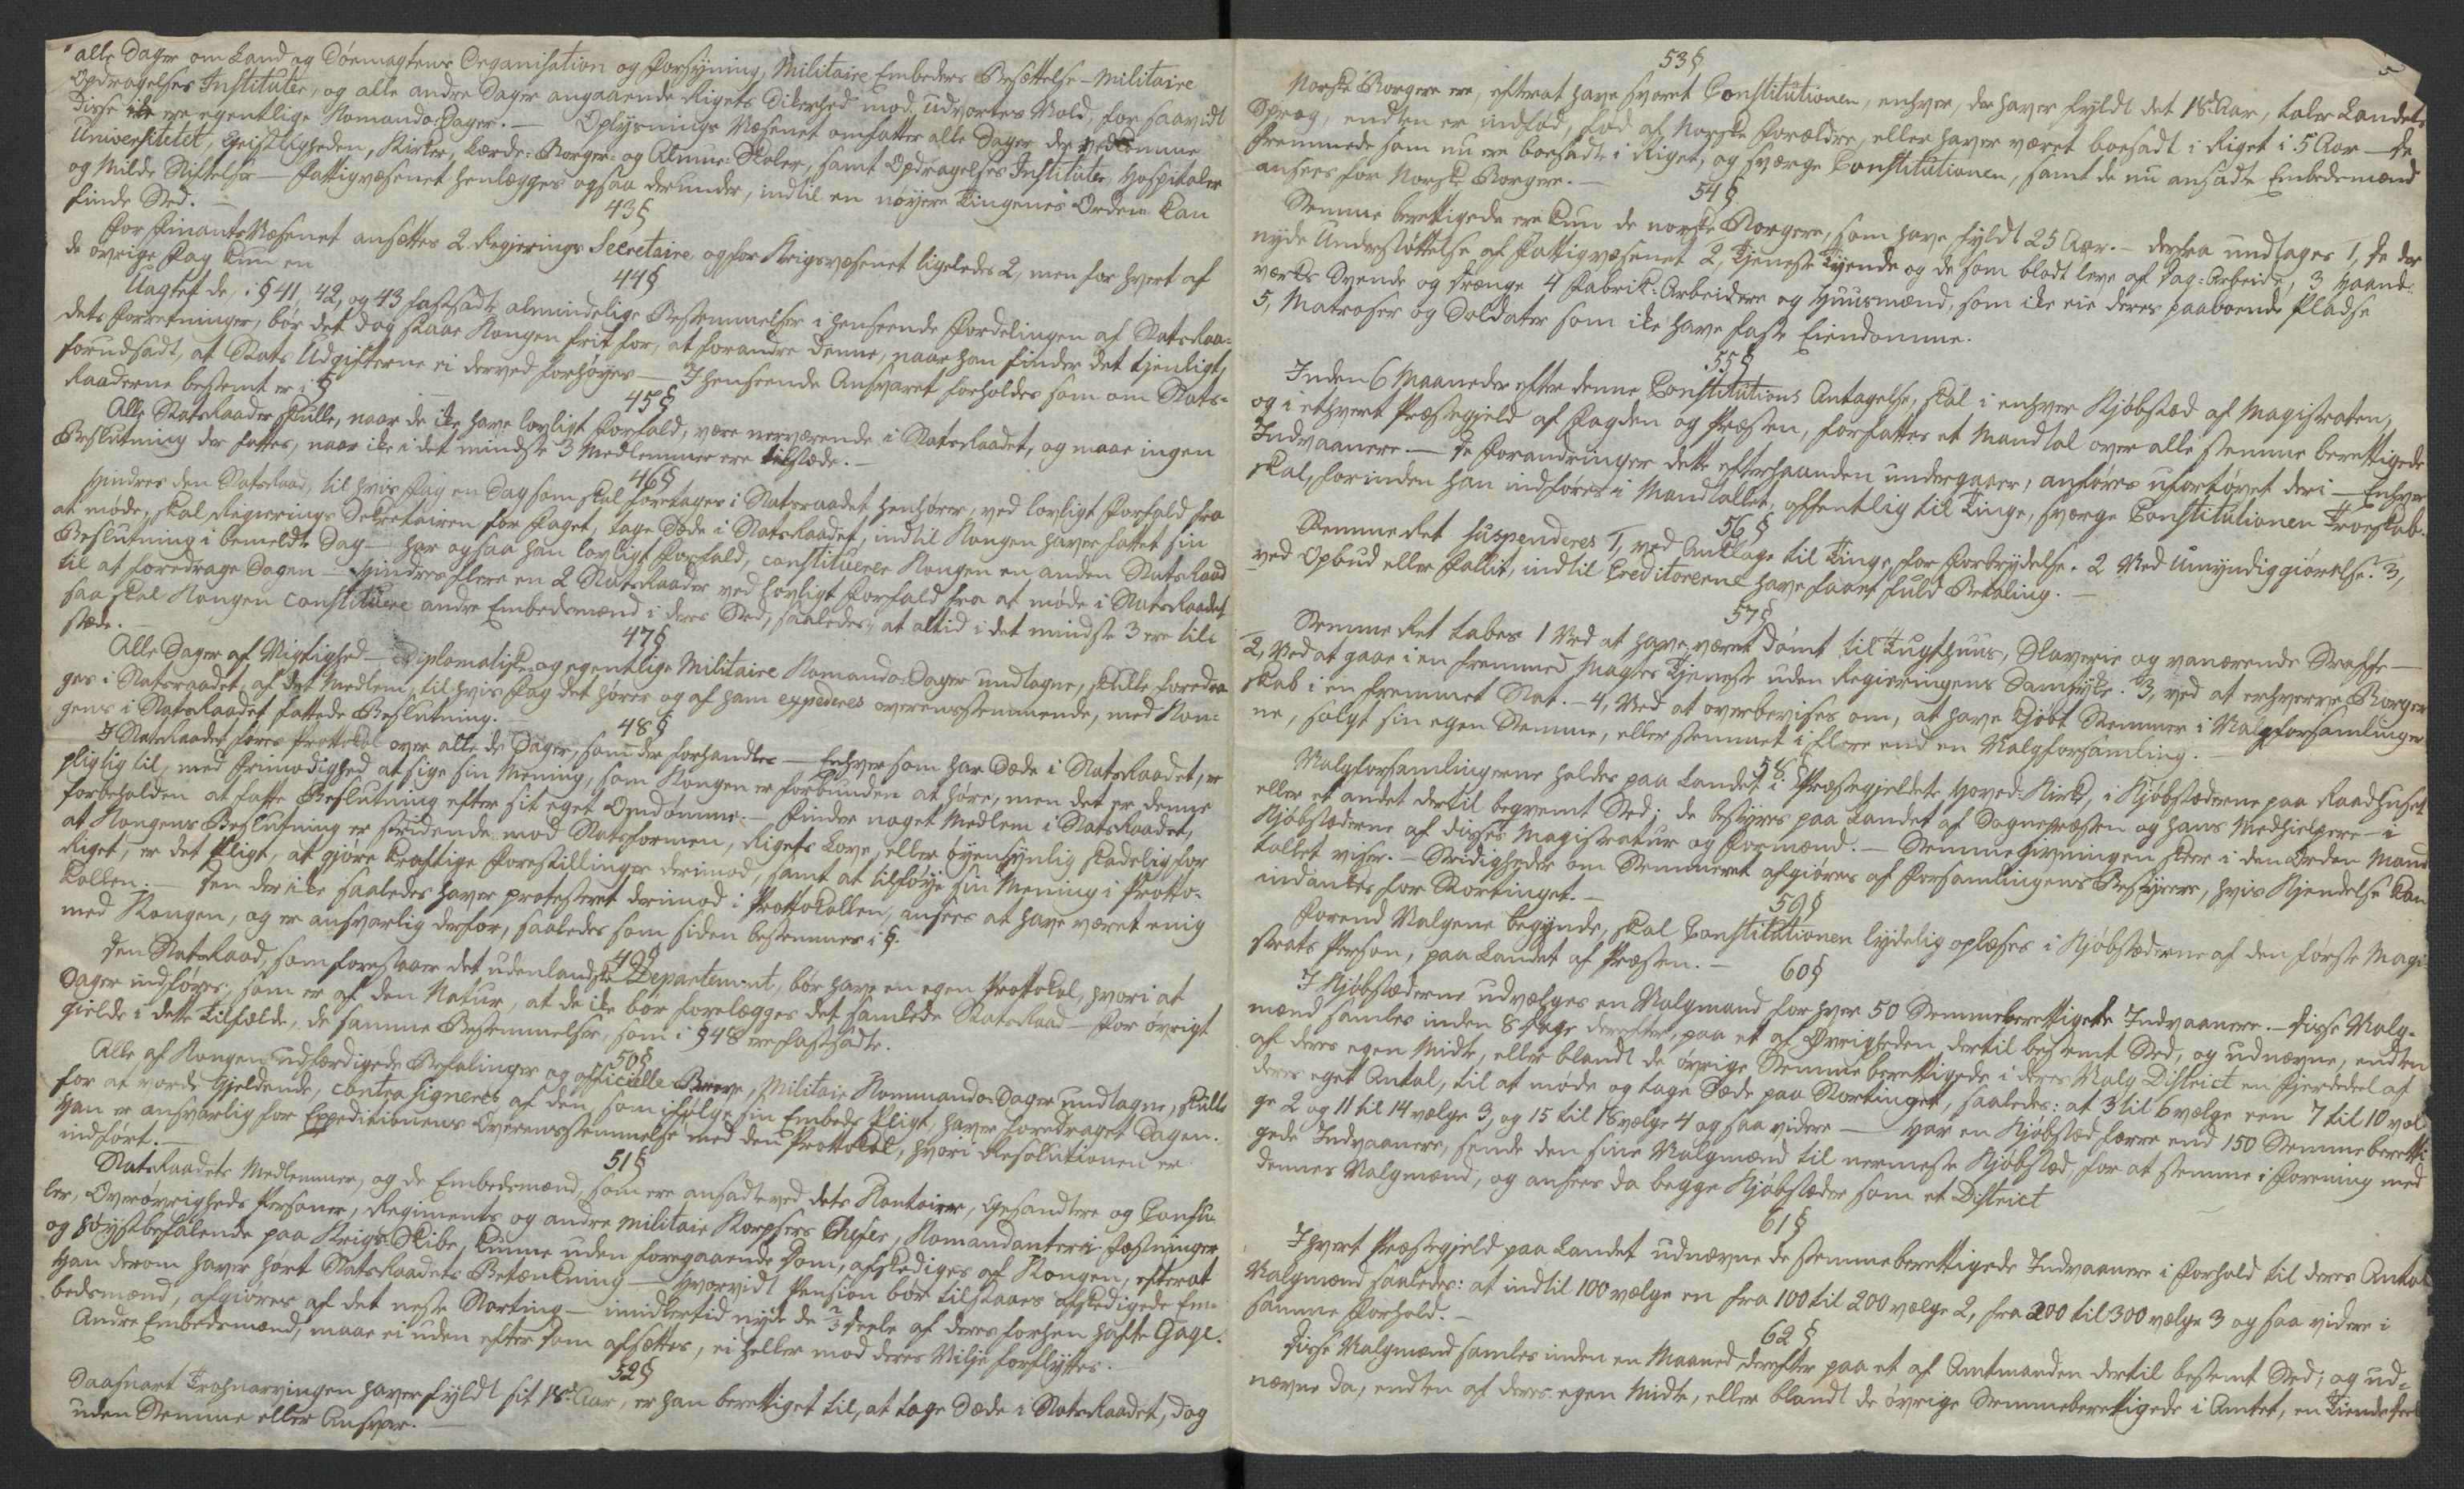 alle Sager om Land og Søemagtens Organisation og Forsyning, Militaire Embeders Besættelse – militaire
Opdragelses Institutter, og alle andre Sager angaaende Rigets Sikerhed mod udvortes Vold, for saavidt
disse ike ere egentlige Komando-Sager. – Oplysnings Væsenet omfatter alle Sager der vedkomme
Universitetet, Geistligheden, Kirker, Lærde- Borger- og Almue-Skoler, samt Opdragelses Institutter, Hospitaler
og Milde Stiftelser – Fattigvæsenet henlægges ogsaa derunder, indtil en nøyere Tingenes Orden kan
finde Sted. –
43§
For Finants Væsenet ansættes 2 Regjerings Secretaire og for Krigsvæsenet ligeledes 2, men for hvert af
de øvrige Fag kun en
44§
Uagtet de, i § 41, 42, og 43 fastsadte almindelige Bestemmelser i henseende Fordelingen af StatsRaa-
dets Forretninger, bør det dog staae Kongen frit for, at forandre denne, naar han finder det tjenligt,
forudsadt, at Stats Udgifterne ei derved forhøyes – I henseende Ansvaret forholdes som om Stats-
Raaderne bestemt er i §
45§
Alle StatsRaader skulle, naar de ike have lovligt Forfald, være nerværende i StatsRaadet, og maae ingen
Beslutning der fattes, naar ike i det mindste 3 Medlemmer ere tilstæde. –
46§
Hindres den StatsRaad, til hvis Fag en Sag som skal foretages i Statsraadet henhører, ved lovligt Forfald fra
at møde, skal Regierings Sekretairen for Faget, tage Sæde i StatsRaadet, indtil Kongen haver fattet sin
Beslutning i bemeldte Sag – har ogsaa han lovligt Forfald, constituerer Kongen en anden StatsRaad
til at foredrage Sagen – Hindres flere en 2 StatsRaader ved lovligt Forfald fra at møde i StatsRaadet
saa skal Kongen constituere andre Embedsmænd i deres Sted, saaledes, at altid i det mindste 3 ere til-
stæde. –
47§
Alle Sager af Vigtighed – Diplomatiske og egentlige Militaire Komando-Sager undtagne, skulle foredra-
ges i Statsraadet, af det Medlem, til hvis Fag det hører og af ham expederes overensstemmende, med Kon-
gens i StatsRaadet fattede Beslutning. –
48§
I StatsRaadet føres Protokol over alle de Sager, som der forhandles – Enhver som har Sæde i StatsRaadet, er
pligtig til, med Frimodighed at sige sin Mening, som Kongen er forbunden at høre, men det er denne
forbeholden at fatte Beslutning efter sit eget Omdømme. – Finder noget Medlem i StatsRaadet,
at Kongens Beslutning er stridende mod Statsformen, Rigets Love, eller øyensynlig skadelig for
Riget, er det Pligt, at gjøre kraftige Forestillinger derimod, samt at tilføye sin Mening i Protto-
kollen. – Den der ike saaledes haver protesteret derimod i Prottokollen, ansees at have været enig
med Kongen, og er ansvarlig derfor, saaledes som siden bestemmes i §.
49§
Den StatsRaad, som forestaaer det udenlandske Departement, bør have en egen Prottokol, hvori at
Sager indføres, som er af den Natur, at de ike bør forelægges det samlede StatsRaad – For øvrigt
gielde i dette Tilfælde, de samme Bestemmelser, som i § 48 ere fastsadte.
50§
Alle af Kongen udfærdigede Befalinger og officielle Breve, Militair Kommando-Sager undtagne, skulle
for at vorde Gjeldende, contrasigneres af den, som ifølge sin Embeds Pligt, haver foredraget Sagen.
Han er ansvarlig for Expeditionens Overensstemmelse med den Prottokol, hvori Resolutionen er
indført. –
51§
StatsRaadets Medlemmer, og de Embedsmænd, som ere ansadte ved dets Kontoirer, Gesandtere og Consu-
ler, Overøvrigheds Personer, Regiments og andre militaire Korpsers Chefer, Komandanter i Fæstninger,
og høystbefalende paa Krigs-Skibe, kunne uden foregaaende Dom, afskediges af Kongen, efterat
Han derom haver hørt StatsRaadets Betænkning – Hvorvidt Pension bør tilstaaes afskedigede Em-
bedsmænd, afgiøres af det neste Storting – imidlertid nyde de 2/3 Deele af deres forhen hafte Gage.
Andre Embedsmænd, maae ei uden efter Dom afsættes, ei heller mod deres Vilje forflyttes.
52§
Saasnart Trohnarvingen haver fyldt sit 18de Aar, er han berettiget til, at tage Sæde i StatsRaadet, dog
uden Stemme eller Ansvar. –
53§
Norske Borgere ere, efterat have svoret Constitutionen, enhver, der haver fyldt det 18de Aar, taler Landets
Sprog, endten er indfød, fød af Norske Forældre, eller haver været boesadt i Riget i 5 Aar – de
Fremmede som nu ere boesadte i Riget, og sværge Constitutionen, samt de nu ansadte Embedsmænd
ansees for Norske Borgere. –
54§
Stemme berettigede ere kun de norske Borgere, som have fyldt 25 Aar. – derfra undtages 1, de der
nyde Understøttelse af Fattigvæsenet 2, Tjeneste Tyende og de som blodt leve af Dag-Arbeide, 3 Haand-
værks Svende og Drænge 4 Fabrik-Arbeidere og Huusmænd, som ike eie deres paaboende Pladse
5, Matroser og Soldater som ike have faste Eiendomme.
55§
Inden 6 Maaneder efter denne Constitutions Antagelse, skal i enhver Kjøbstæd af Magistraten,
og i ethvert Præstegjeld af Fogden og Præsten, forfattes et Mandtal over alle stemme berettigede
Indvaanere. – De Forandringer dette efterhaanden undergaaer, anføres ufortøvet deri – Enhver
skal, forinden han indføres i Mandtallet, offentlig til Tinge, sværge Constitutionen Troeskab.
56§
Stemme Ret suspenderes 1, ved Anklage til Tinge, for Forbrydelse. 2 Ved Umyndiggiørelse. 3,
ved Opbud eller Fallit, indtil Creditorerne have faaet fuld Betaling. –
57§
Stemme Ret tabes 1 Ved at have været dømt til Tugthuus, Slaverie og vanærende Straffe –
2, Ved at gaae i en fremmed Magts Tjeneste uden Regieringens Samtykke. 3, ved at erhverve Borger-
skab i en fremmet Stat. – 4, Ved at overbevises om, at have kjøbt Stemmer i Valgforsamlinger-
ne, solgt sin egen Stemme, eller stemmet i flere end en Valgforsamling. –
58§
Valgforsamlingerne holdes paa Landet i Præstegjeldets Hoved-Kirke, i Kjøbstæderne paa Raadhuset
eller et andet dertil beqvemt Sted; de bestyres paa Landet af Sognepræsten og hans Medhielpere – i
Kjøbstæderne af disses Magistratur og Formænd. – Stemmegivningen skeer i den Orden Mand-
tallet viser. – Stridigheder om Stemmeret afgiøres af Forsamlingens Bestyrere, hvis Kjendelse kan
indankes for Stortinget. –
59§
Forend Valgene begynde, skal Constitutionen lydelig oplæses i Kjøbstæderne af den første Magi-
strats Person, paa Landet af Præsten. –
60§
I Kjøbstæderne udvælges en Valgmand for hver 50 Stemmeberettigede Indvaanere. – Disse Valg-
mænd samles inden 8 Dage derefter, paa et af Øvrigheden dertil bestemt Sted, og udnævne, endten
af deres egen Midte, eller blandt de øvrige Stemme berettigede i deres Valg District en Fjerdedel af
deres eget Antal, til at møde og tage Sæde paa Stortinget, saaledes: at 3 til 6 vælge een 7 til 10 væl-
ge 2 og 11 til 14 vælge 3, og 15 til 18 vælge 4 og saa videre – Har en Kjøbstæd færre end 150 Stemmeberetti-
gede Indvaanere, sende den sine Valgmænd til nermeste Kjøbstæd, for at stemme i Forening med
dennes Valgmænd, og ansees da begge Kjøbstæder som et District
61§
I hvert Præstegjeld paa Landet udnævne de stemmeberettigede Indvaanere i Forhold til deres Antal
Valgmænd saaledes: at indtil 100 vælge en fra 100 til 200 vælge 2, fra 200 til 300 vælge 3 og saa videre i
samme Forhold. –
62§
Disse Valgmænd samles inden en Maaned derefter paa et af Amtmanden dertil bestemt Sted; og ud-
nævne da, endten af deres egen Midte, eller blandt de øvrige Stemmeberettigede i Amtet, en Tiendedeel